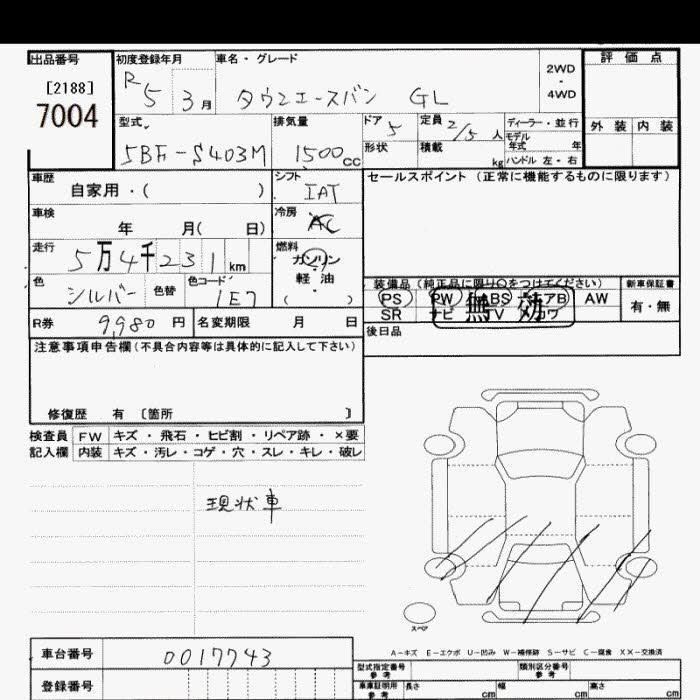 出品番号
[2188]
7004
初度登録年月
R5 3月
車名・グレード
タウンエースバン GL
2WD
・
4WD
評価点
外装 内装
型式
5BF-S403M
排気量
1500cc
ドア 5
定員 2/5 人
ディーラー・並行
モデル年式 年
形状
積載 kg
ハンドル 左・右
車歴
自家用・( )
シフト
IAT
セールスポイント (正常に機能するものに限ります)
車検
年 月( 日)
冷房
AC
走行
5万4千231km
燃料
ガソリン
軽油
( )
色
シルバー
色替
色コード
1E7
装備品 (純正品に限り○をつけてください)
PS PW ABS エアB AW
SR ナビ TV カワ
無効
新車保証書
有・無
R券 9,980 円
名変期限 月 日
後日品
注意事項申告欄(不具合内容等は具体的に記入して下さい)
修復歴 有 〔箇所 〕
検査員記入欄
FW キズ・飛石・ヒビ割・リペア跡・×要
内装 キズ・汚レ・コゲ・穴・スレ・キレ・破レ
現状車
スペア
A-キズ E-エクボ U-凹み W-補修跡 S-サビ C-腐食 XX-交換済
車台番号
0017743
登録番号
型式指定番号
参考
類別区分番号
参考
車庫証明用
参考
長さ cm
幅 cm
高さ cm